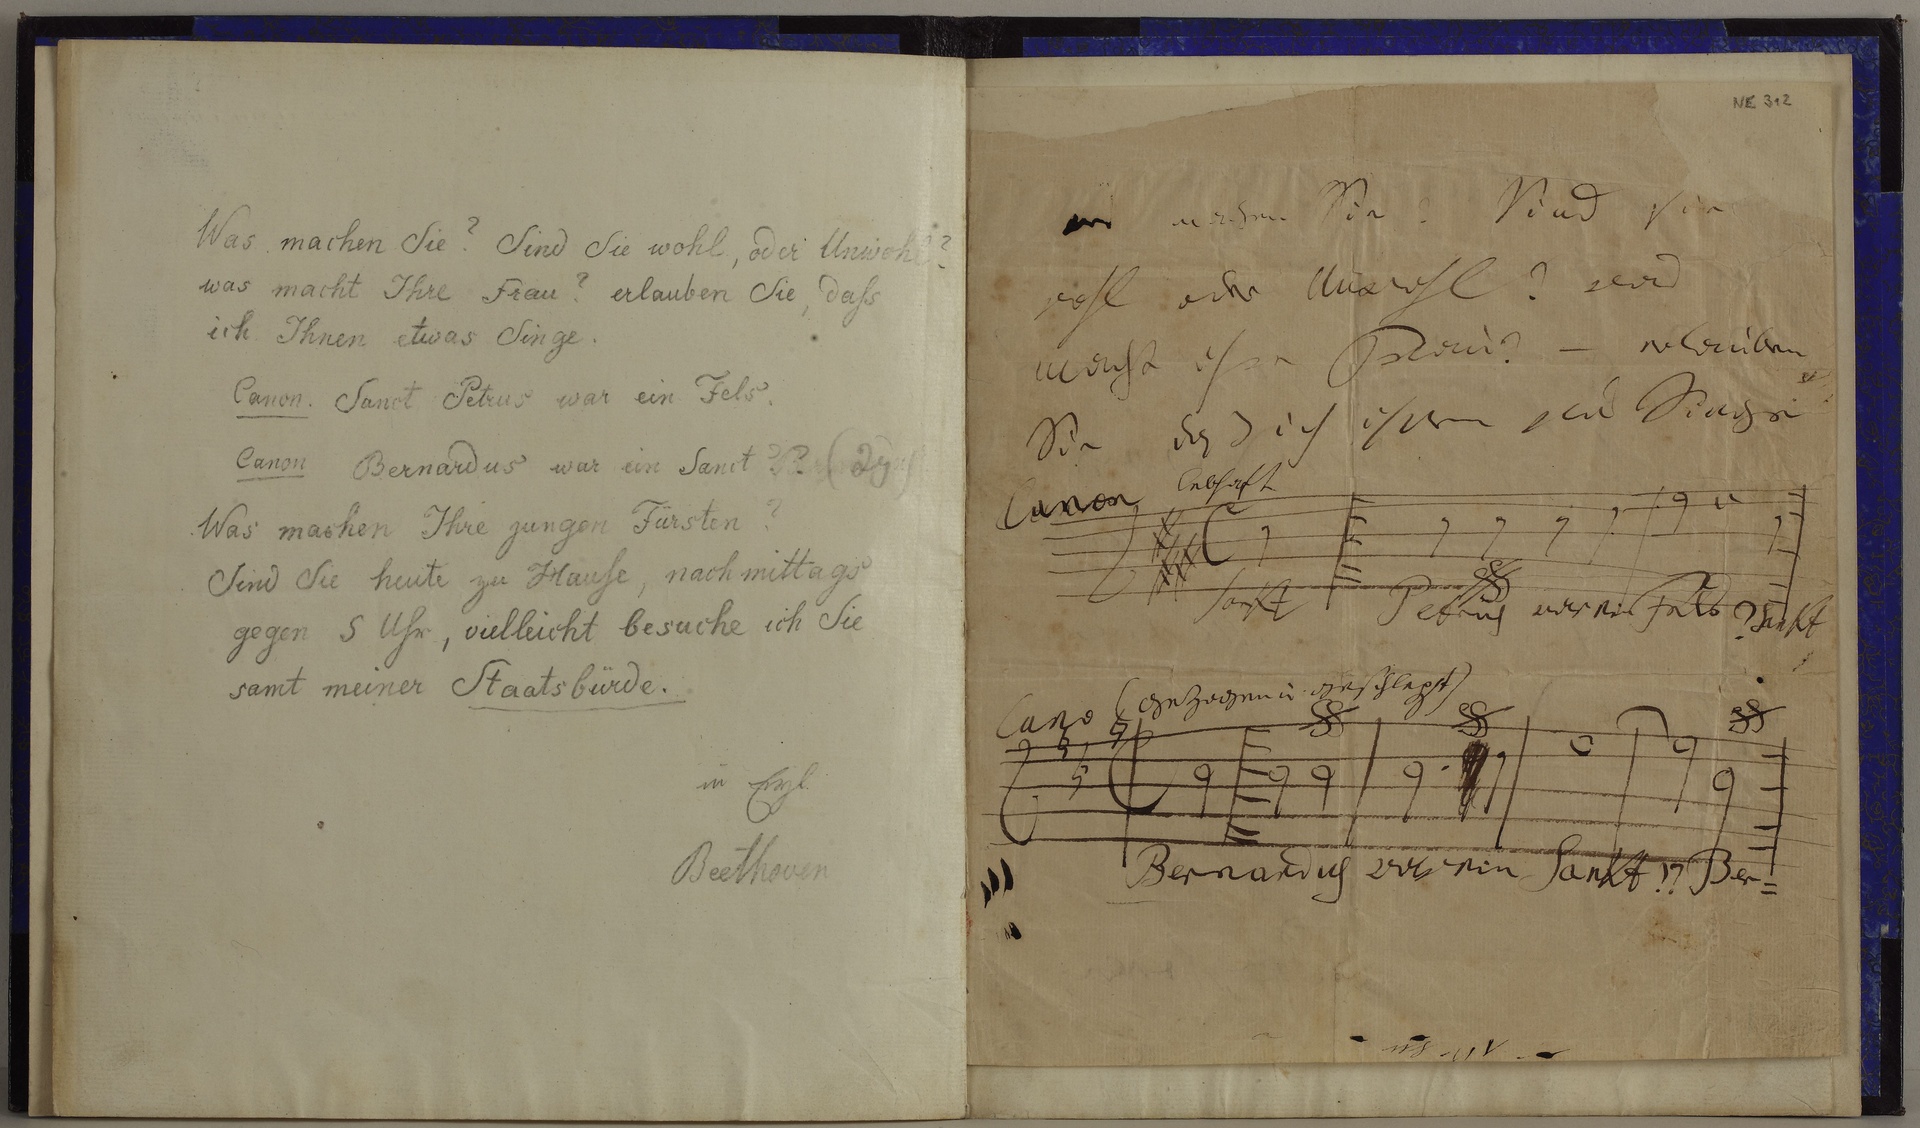 Was machen Sie? Sind Sie wohl, oder Unwohl?
was macht Ihre Frau? erlauben Sie, daſs
ich Ihnen etwas Singe.
Canon. Sanct Petrus war ein Fels.
Canon Bernardus war ein Sanct??
Was machen Ihre jungen Fürsten?
Sind Sie heute zu Hauſe, nachmittags
gegen 5 Uhr, vielleicht besuche ich Sie
samt meiner Staatsbürde.
in Eyl.
Beethoven
NE 312
machen Sie? Sind sie
wohl oder Unwohl? was
macht ihre Frau? — erlauben
Sie daß ich ihnen was Singe
Canon lebhaft
Sankt Petrus war ein Fels? Sankt
Cano (gezogen u. geschleppt)
Bernardus war ein Sankt!? Ber=